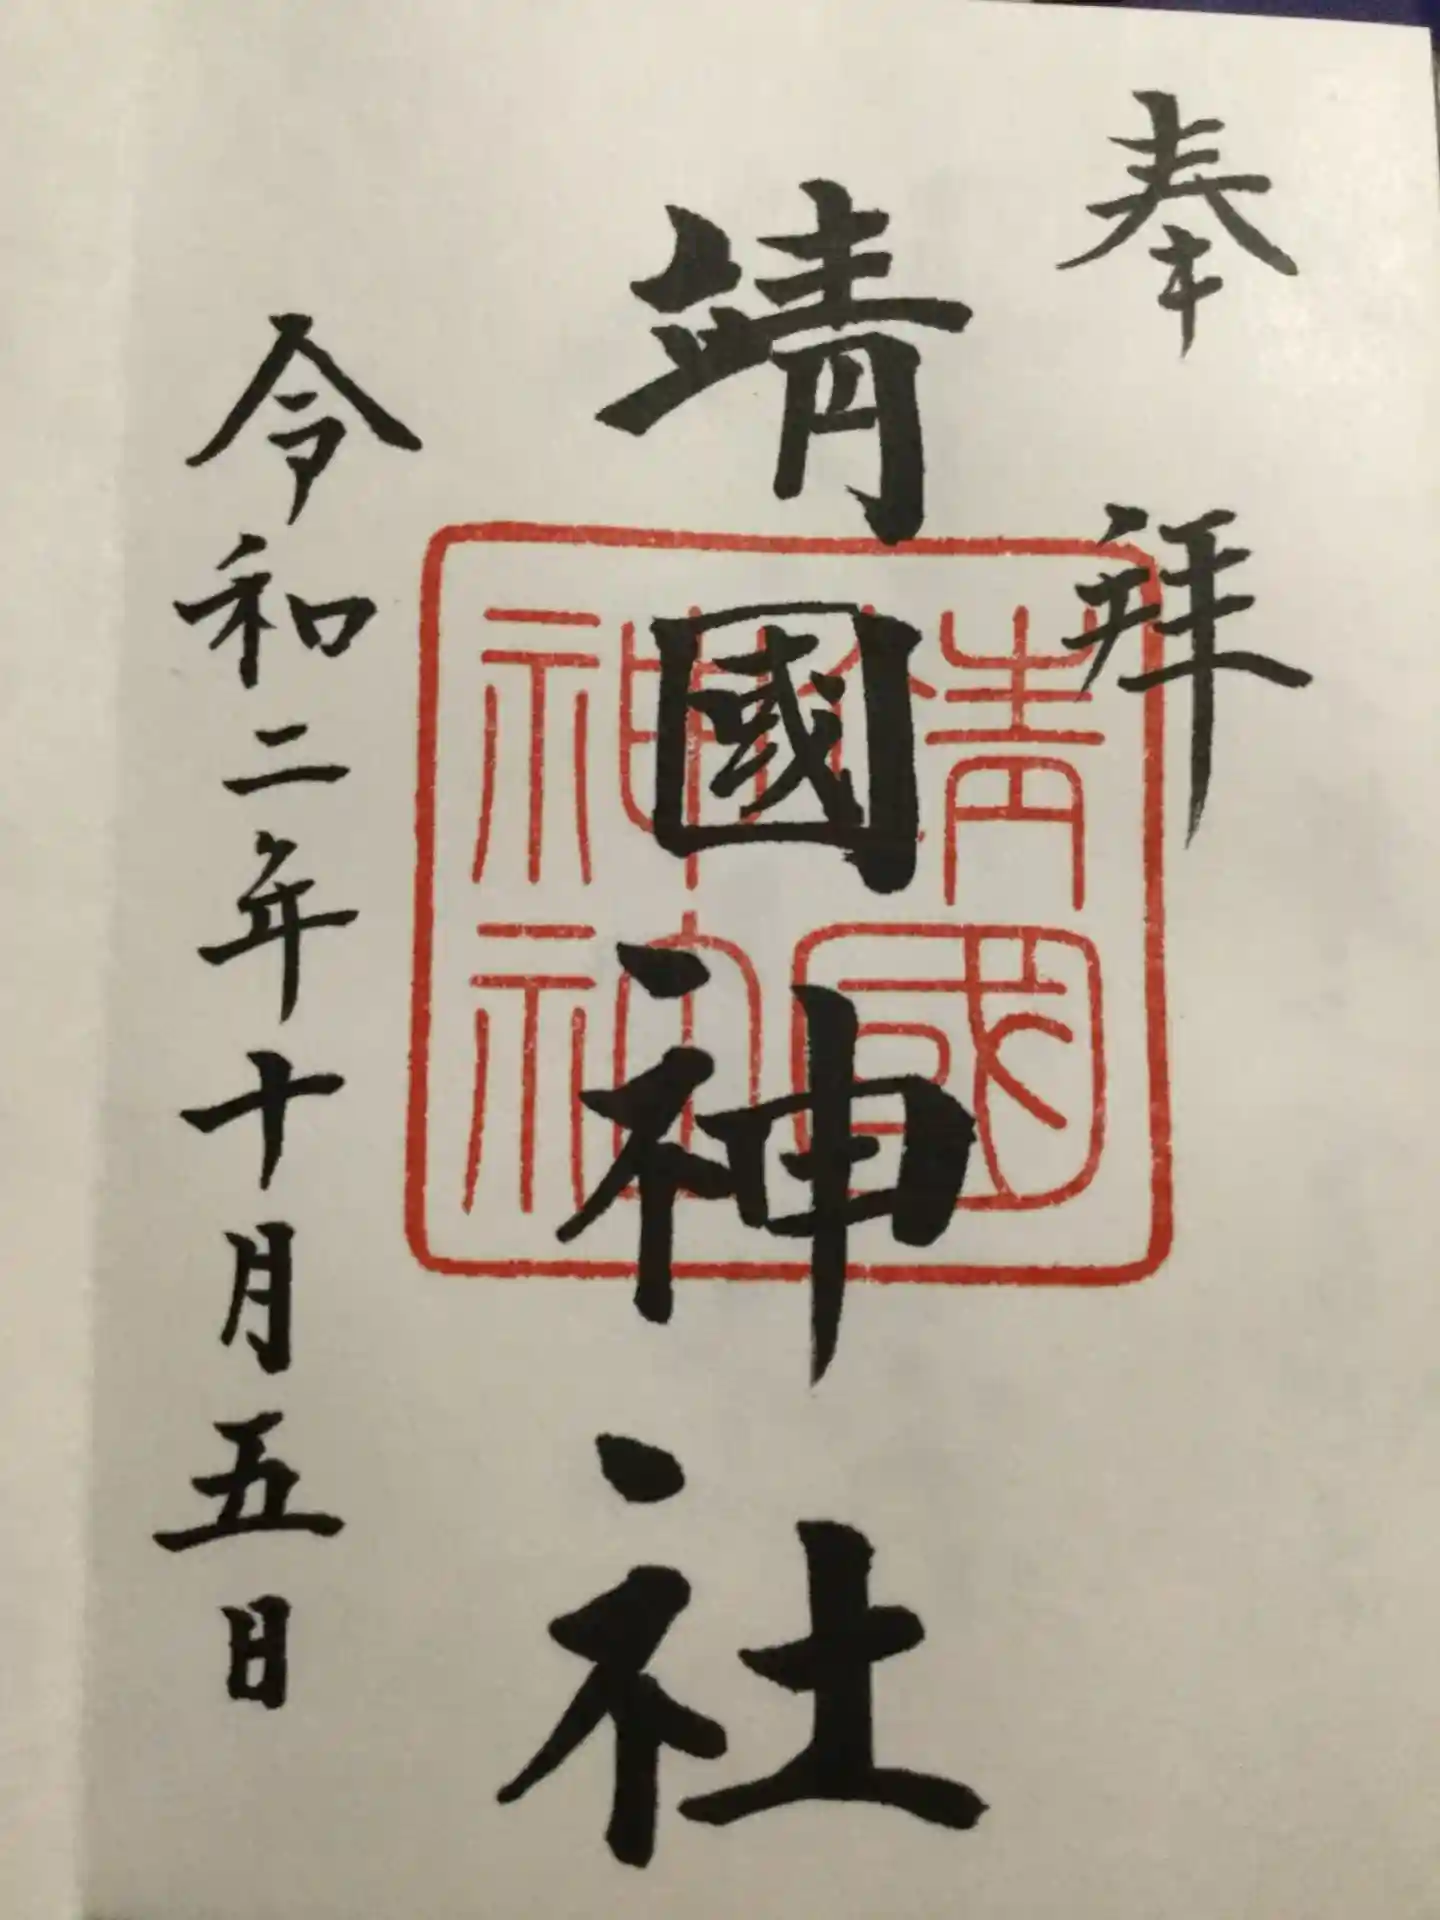 奉拝
靖國神社
靖國神社
令和二年十月五日